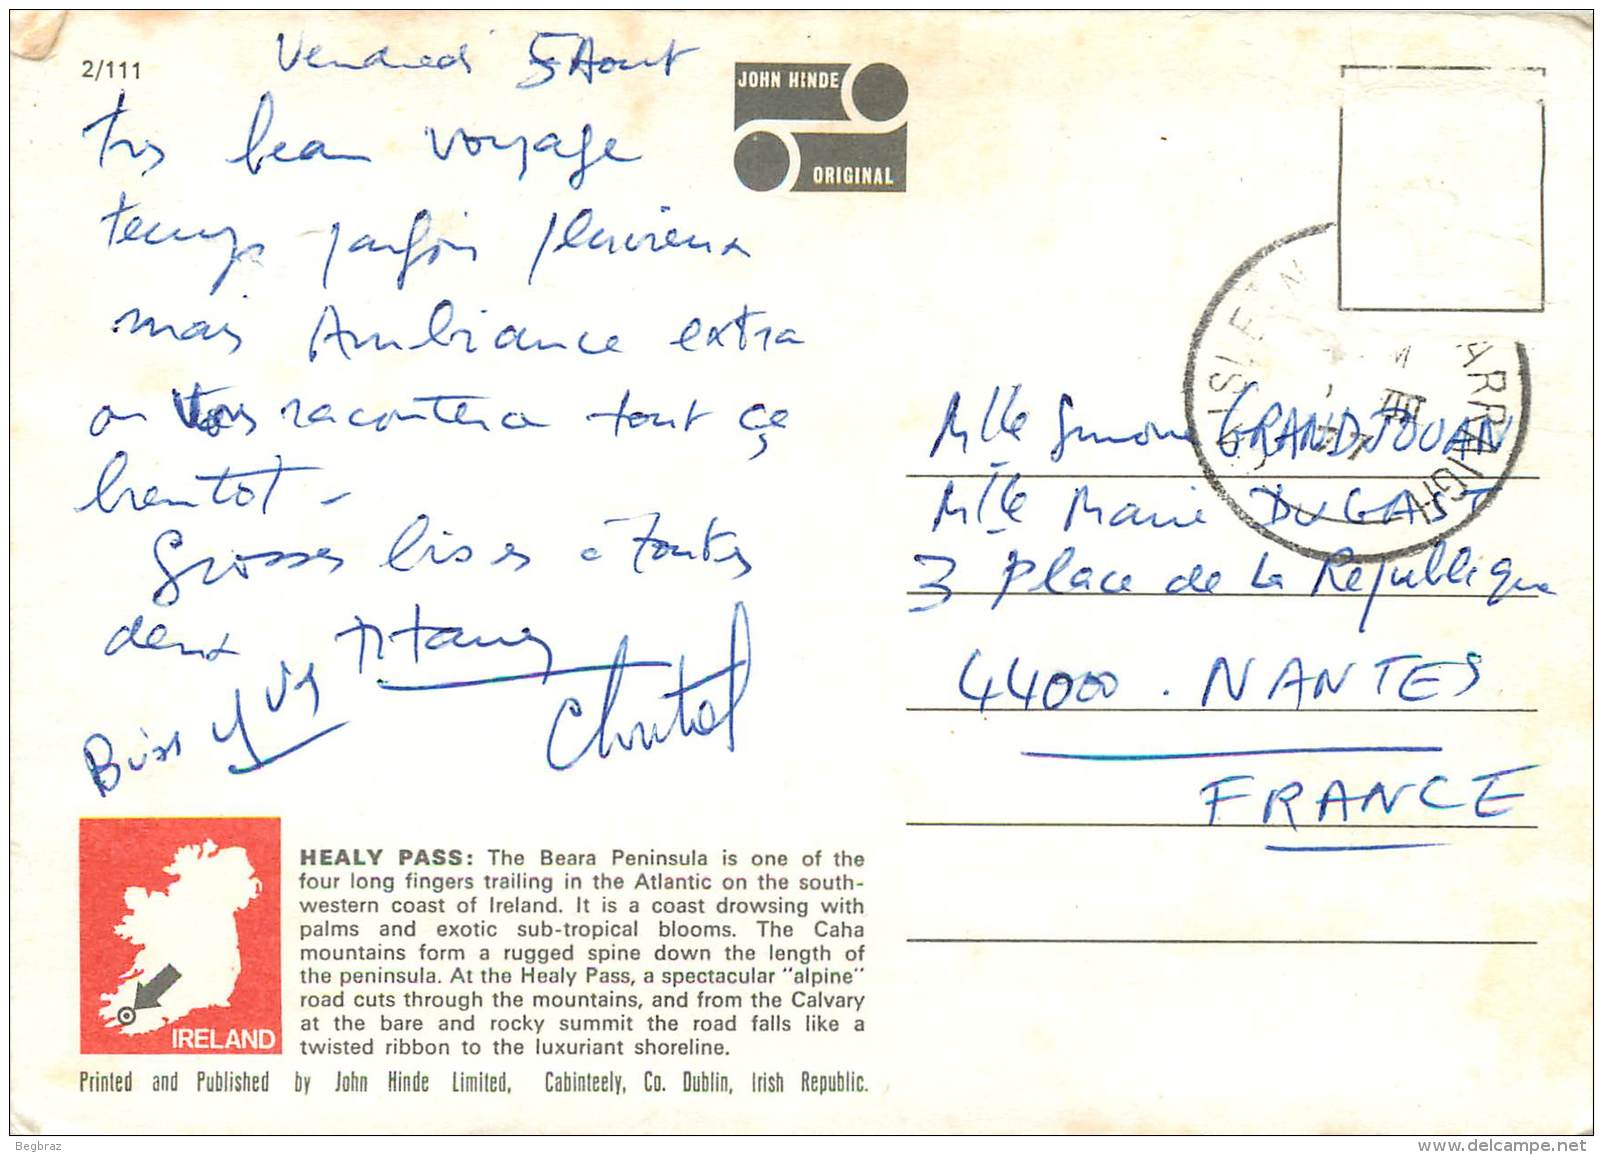 2/111
Vendredi 5 Aout
JOHN HINDE
ORIGINAL
très beau voyage
temps parfois pluvieux
mais Ambiance extra
on vous racontera tout ça
bientot -
Grosses bises à toutes
deux
Chantal
Yves
Mlle Simone GRANDJOUAN
Mlle Marie DUGAST
3 Place de La République
44000. NANTES
FRANCE
HEALY PASS: The Beara Peninsula is one of the
four long fingers trailing in the Atlantic on the south-
western coast of Ireland. It is a coast drowsing with
palms and exotic sub-tropical blooms. The Caha
mountains form a rugged spine down the length of
the peninsula. At the Healy Pass, a spectacular "alpine"
road cuts through the mountains, and from the Calvary
at the bare and rocky summit the road falls like a
twisted ribbon to the luxuriant shoreline.
IRELAND
Printed and Published by John Hinde Limited, Cabinteely, Co. Dublin, Irish Republic.
Begbraz
www.delcampe.net